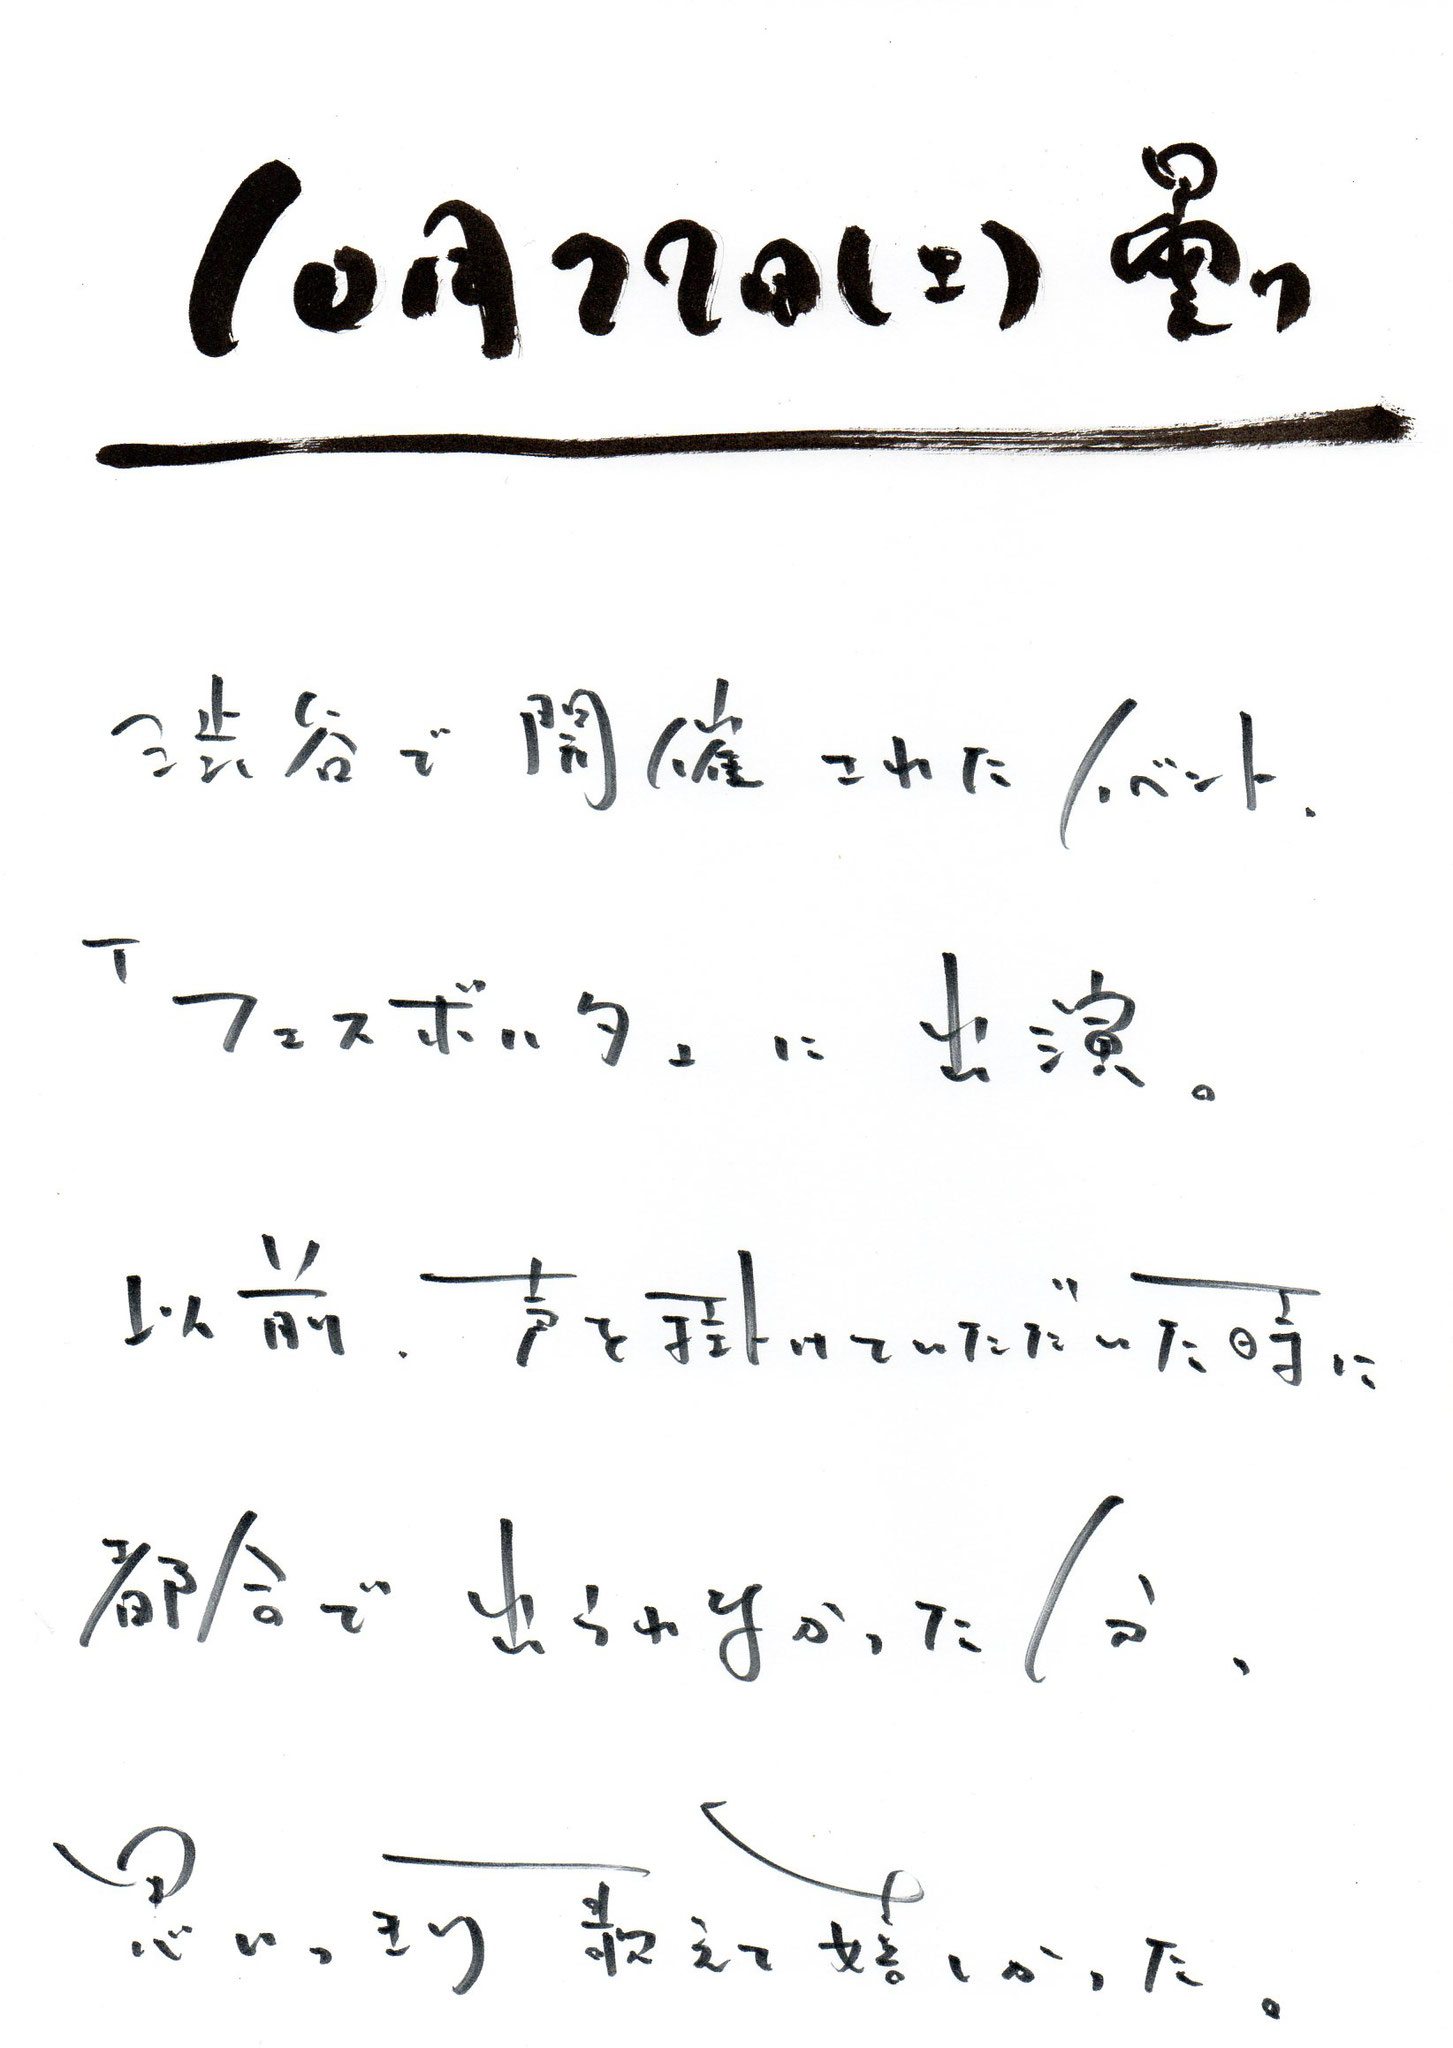 10月22日(土) 曇り
渋谷で開催されたイベント、
『フェスボルタ』に出演。
以前、声を掛けていただいた時に
都合で出られなかった分、
思いっきり歌えて嬉しかった。